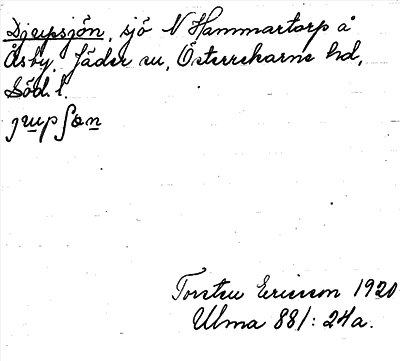 Djupsjön, sjö N Hammartorp å
Åsby. Jäder sn, Österrekarne hd,
Söd. l.
jupʃøn
Torsten Ericsson 1920
Ulma 88/: 24a.